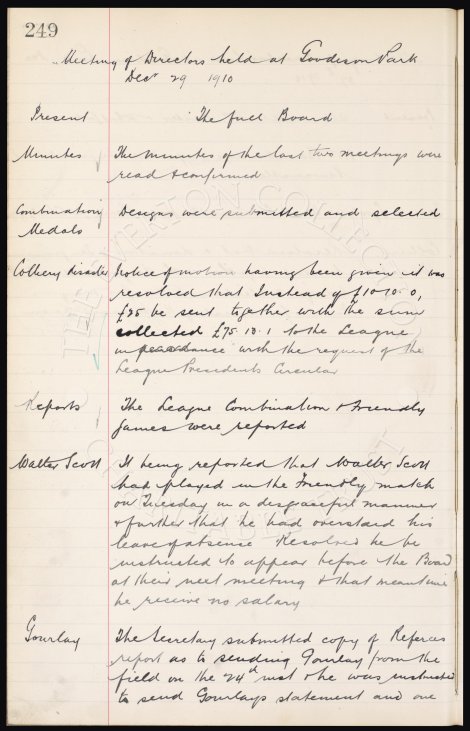 249
Meeting of Directors held at Goodison Park
Decr 29 1910
Present The full Board
Minutes of The minutes of the last two meetings were
read & confirmed
Combination Designs were submitted and selected
Medals
Colliery disaster Notice of motion having been given it was
resolved that Instead of £10-10-0,
£25 be sent together with the sum
collected £75. 13. 1 to the League
in with the request of the
League Presidents Circular
Reports The League Combination & Friendly
games were reported
Walter Scott It being reported that Walter Scott
had played in the Friendly match
on Tuesday in a disgraceful manner
& further that he had overstaid his
leave of absense Resolved he be
instructed to appear before the Board
at their next meeting & that meantime
he receive no salary
Gourlay The Secretary submitted copy of Referees
report as to sending Gourlay from the
field on the 24th inst & he was instructed
to send Gourlays statement and one
THE EVERTON COLLECTION